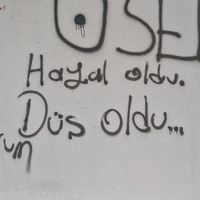 OSE
Hayal oldu.
Düş oldu...
rum